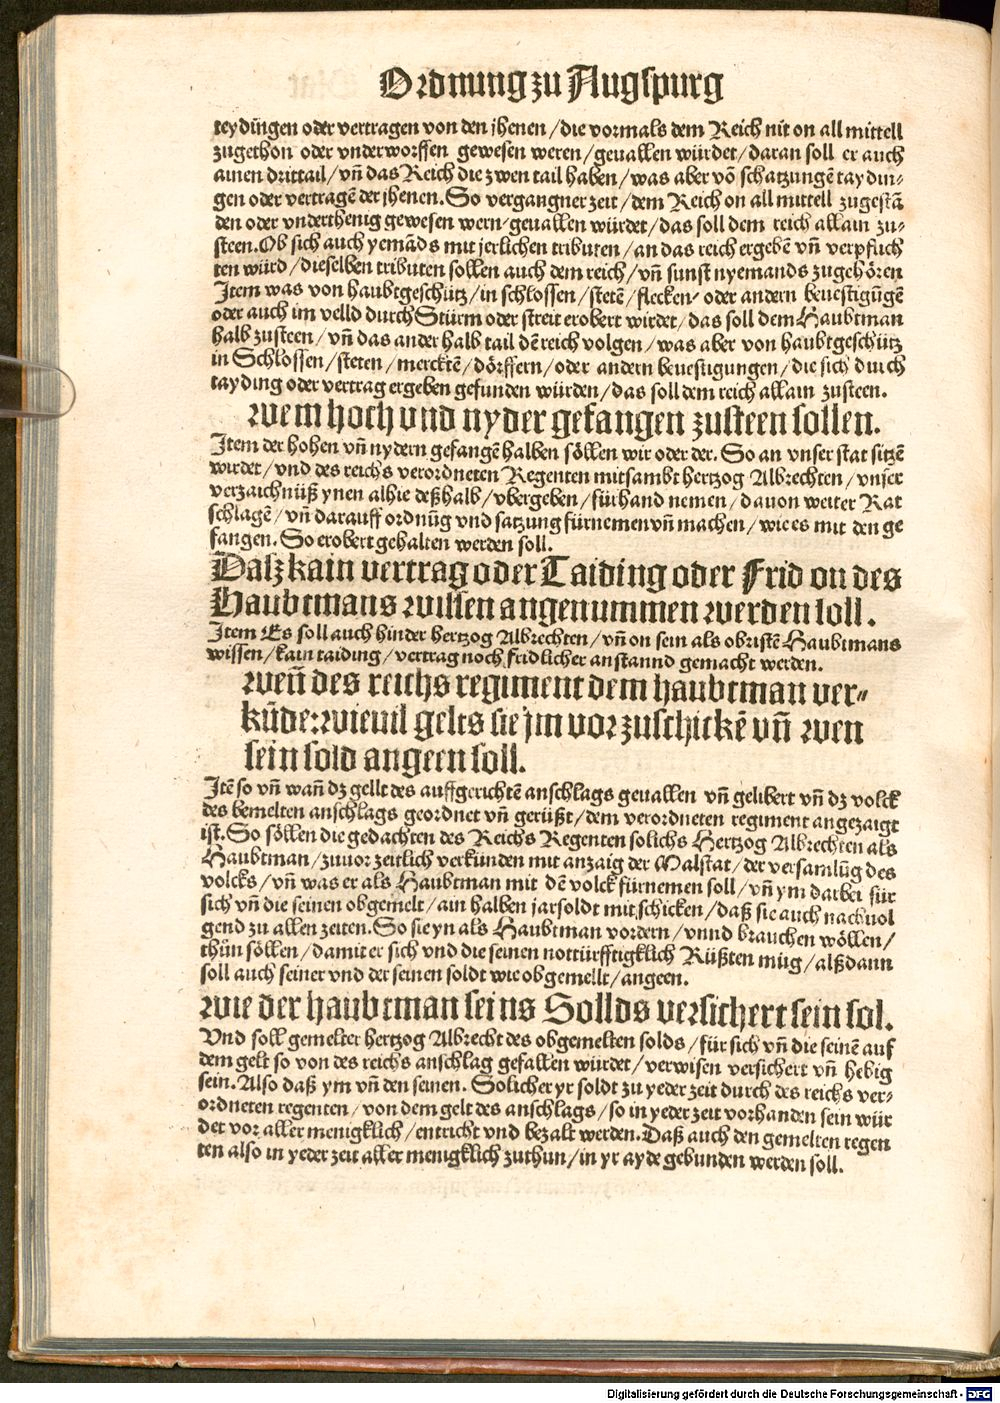 Ordnung zu Augspurg
teydingen oder vertragen von den jhenen / die vormals dem Reich nit on all mittell
zugethon oder vnderworffen gewesen weren / geuallen würdet / daran soll er auch
ainen drittail / vñ das Reich die zwen tail haben / was aber võ schatzungẽ taydin⸗
gen oder vertragẽ der jhenen. So vergangner zeit / dem Reich on all mittell zugestã
den oder vnderthenig gewesen wern / geuallen würdet / das soll dem reich allain zu⸗
steen. Ob sich auch yemãds mit jerlichen tributen / an das reich ergebẽ vñ verpfuch
ten würd / dieselben tributen sollen auch dem reich / vñ sunst nyemands zugehören
Item was von haubtgeschütz / in schlossen / stetẽ / flecken / oder andern beuestigũgẽ
oder auch im velld durch Stürm oder streit erobert wirdet / das soll dem Haubtman
halb zusteen / vñ das ander halb tail dẽ reich volgen / was aber von haubtgeschütz
in Schlossen / steten / mercktẽ / dörffern / oder andern beuestigungen / die sich durch
tayding oder vertrag ergeben gefunden würden / das soll dem reich allain zusteen.
Wem hoch vnd nyder gefangen zusteen sollen.
Item der hohen vñ nydern gefangẽ halben söllen wir oder der. So an vnser stat sitzẽ
wirdet / vnd des reichs verordneten Regenten mitsambt hertzog Albrechten / vnser
verzaichnüß ynen alhie deßhalb / vbergeben / für hand nemen / dauon weiter Rat
schlagẽ / vñ darauff ordnũg vnd satzung fürnemen vñ machen / wie es mit den ge
fangen. So erobert gehalten werden soll.
Dasz kain vertrag oder Taiding oder Frid on des
Haubtmans wissen angenummen werden soll.
Item Es soll auch hinder hertzog Albrechten / vñ on sein als obristẽ Haubtmans
wissen / kain taiding / vertrag noch fridlicher anstannd gemacht werden.
Weñ des reichs regiment dem haubtman ver⸗
kũde: wieuil gelts sie jm vor zuschickẽ vñ wen
sein sold angeen soll.
Itẽ so vñ wañ dz gellt des auffgerichtẽ anschlags geuallen vñ gelibert vñ dz volck
des bemelten anschlags geordnet vñ gerüßt / dem verordneten regiment angezaigt
ist. So söllen die gedachten des Reichs Regenten solichs Hertzog Albrechten als
Haubtman / zuuor zeitlich verkünden mit anzaig der Malstat / der versamlũg des
volcks / vñ was er als Haubtman mit dẽ volck fürnemen soll / vñ ym darbei für
sich vñ die seinen obgemelt / ain halben jarsoldt mit schicken / daß sie auch nachuol
gend zu allen zeiten. So sie yn als Haubtman vordern / vnnd brauchen wöllen /
thůn söllen / damit er sich vnd die seinen nottürfftigklich Rüßten müg / alßdann
soll auch seiner vnd der seinen soldt wie obgemellt / angeen.
Wie der haubtman seins Sollds versichert sein sol.
Vnd soll gemelter hertzog Albrecht des obgemelten solds / für sich vñ die seinẽ auf
dem gelt so von des reichs anschlag gefallen würdet / verwisen versichert vñ hebig
sein. Also daß ym vñ den seinen. Solicher yr soldt zu yeder zeit durch des reichs ver⸗
ordneten regenten / von dem gelt des anschlags / so in yeder zeit vorhanden sein wür
det vor aller menigklich / entricht vnd bezalt werden. Daß auch den gemelten regen
ten also in yeder zeit aller menigklich zuthun / in yr ayde gebunden werden soll.
Digitalisierung gefördert durch die Deutsche Forschungsgemeinschaft - DFG